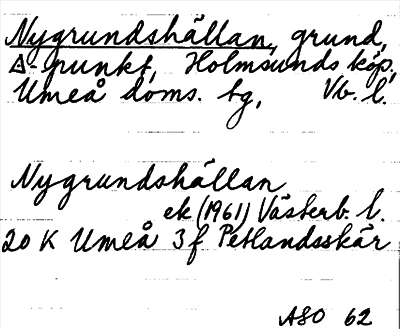 Nygrundshällan, grund,
△-punkt, Holmsunds köp,
Umeå doms. bg, Vb. l.
Nygrundshällan
ek (1961) Västerb. l.
20 K Umeå 3f Petlandsskär
ASO 62